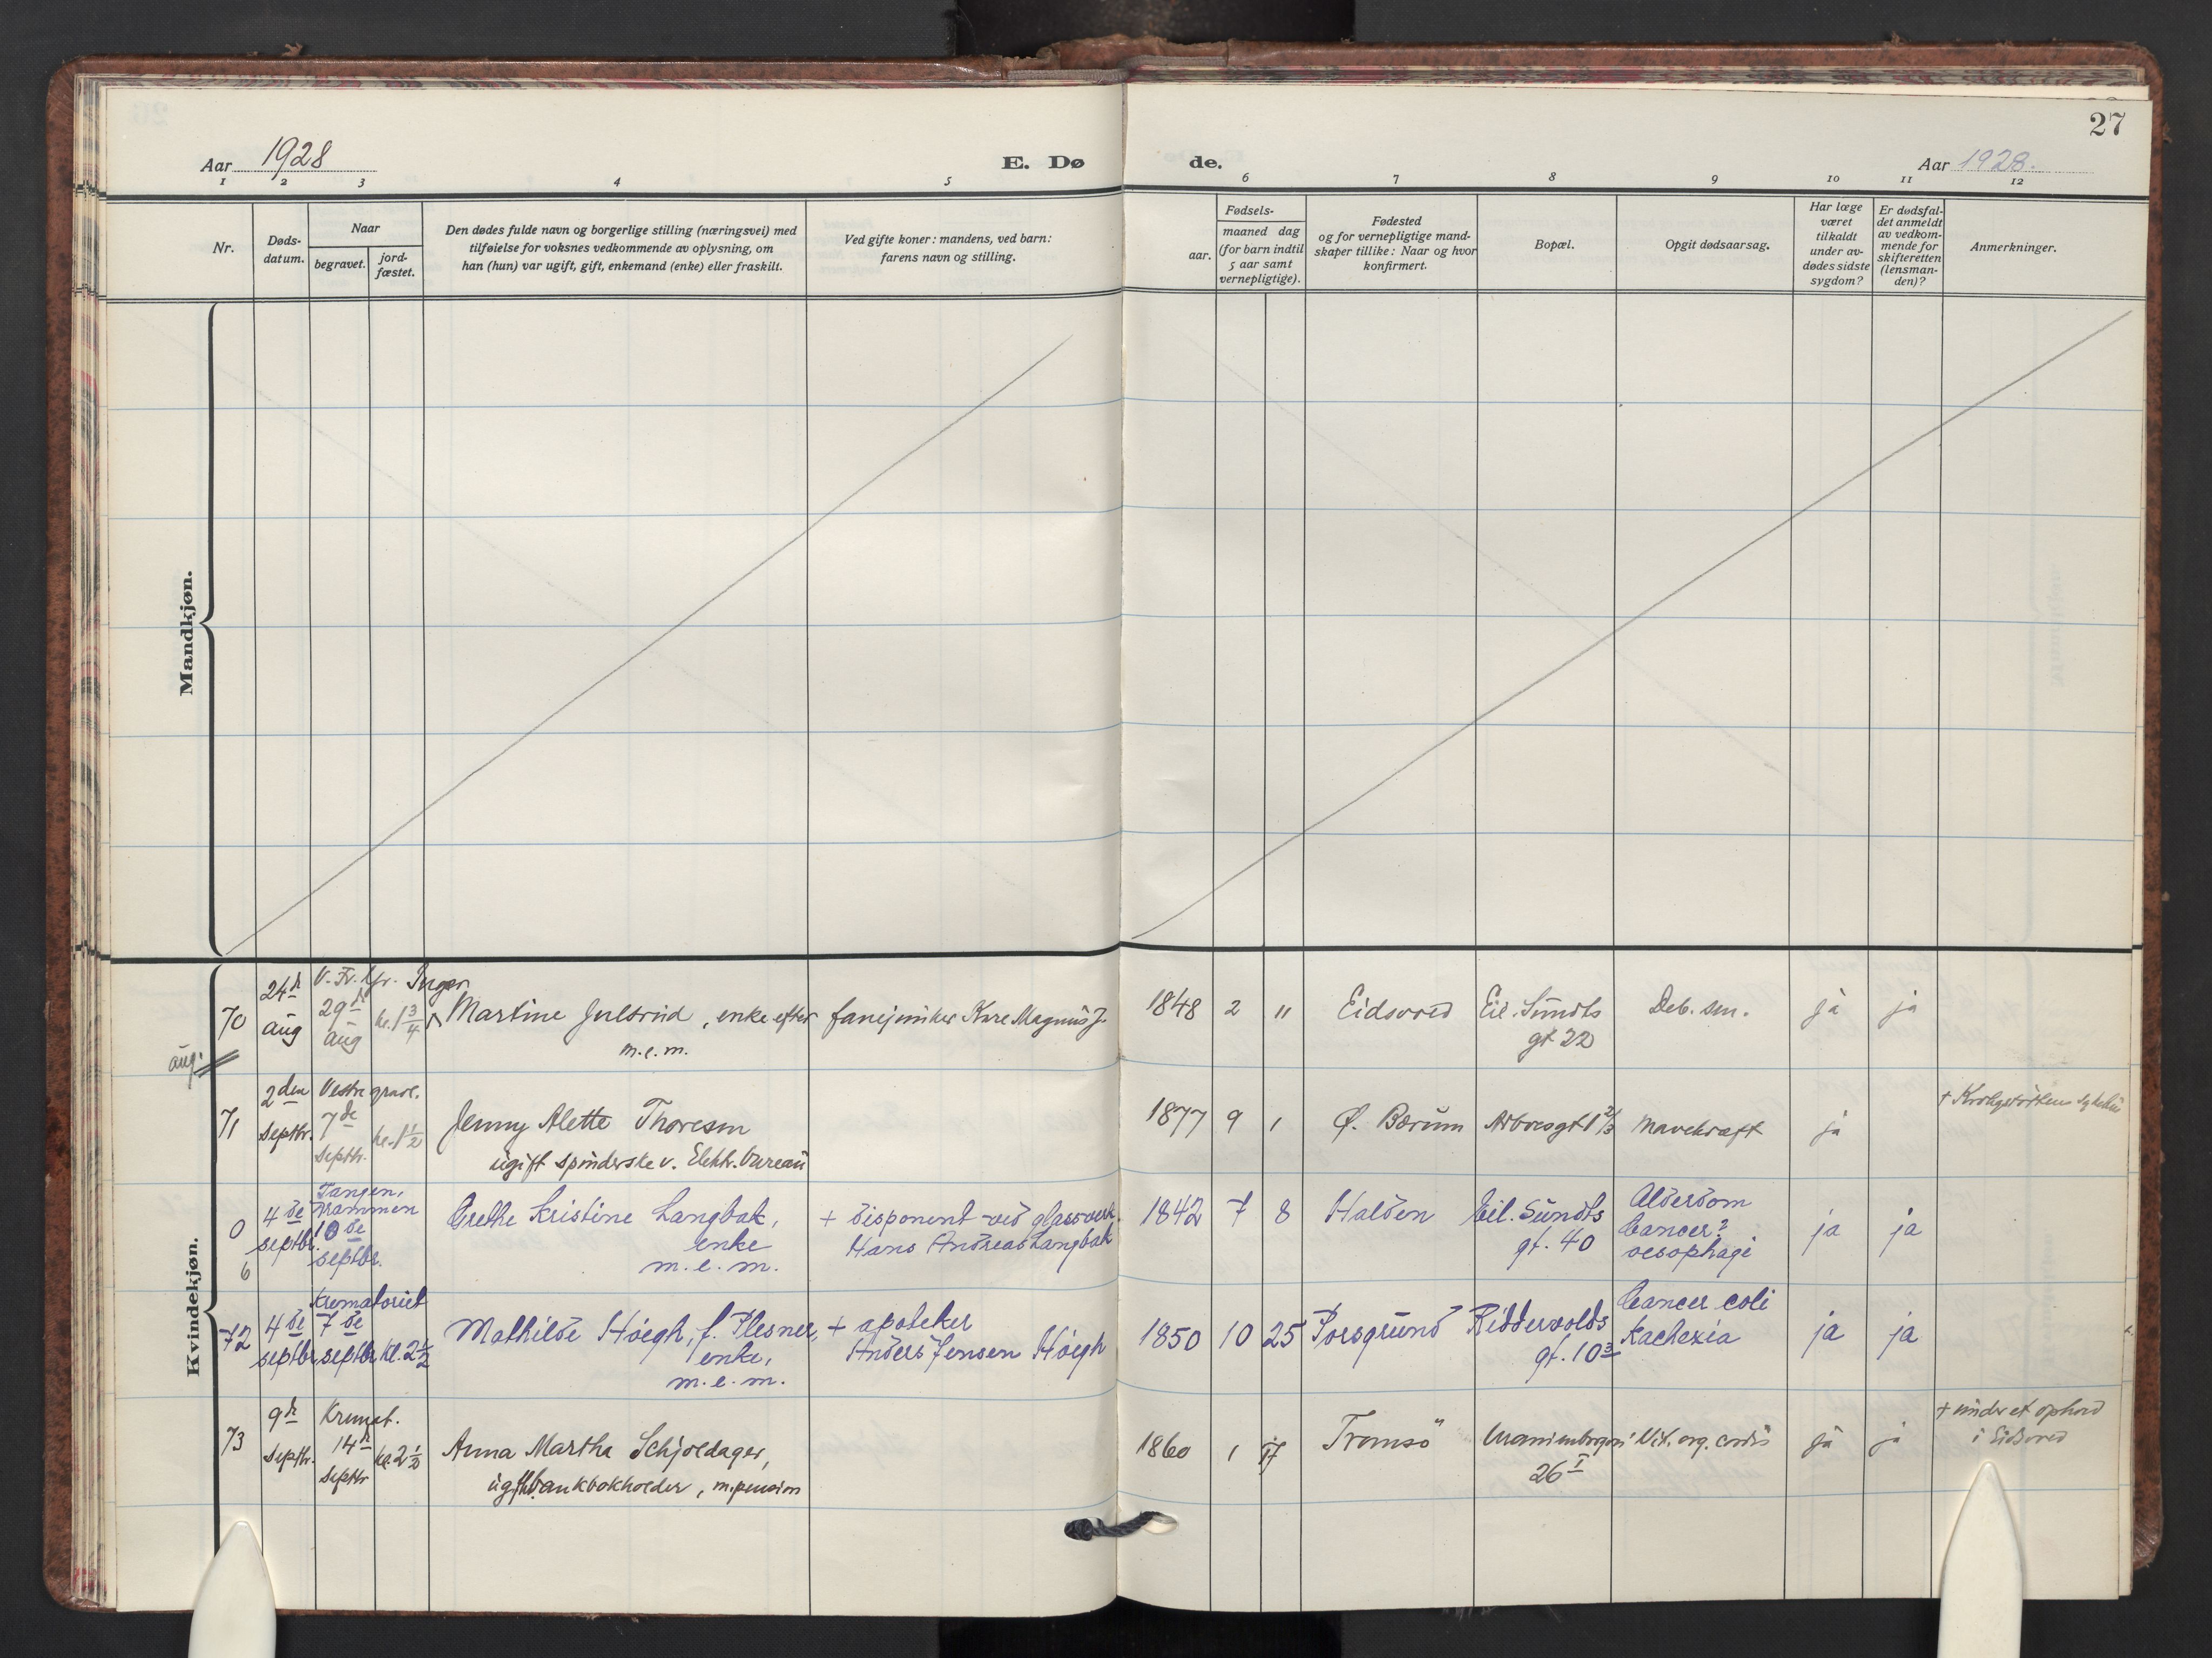 27
Aar 1928
E. Dø
de.
Aar 1928.
1 2 3 4 5 6 7 8 9 10 11 12
Nr.
Døds-
datum.
Naar
begravet.
jord-
fæstet.
Den dødes fulde navn og borgerlige stilling (næringsvei) med
tilføielse for voksnes vedkommende av oplysning, om
han (hun) var ugift, gift, enkemand (enke) eller fraskilt.
Ved gifte koner: mandens, ved barn:
farens navn og stilling.
Fødsels-
aar.
maaned dag
(for barn indtil
5 aar samt
vernepligtige).
Fødested
og for vernepligtige mand-
skaper tillike: Naar og hvor
konfirmert.
Bopæl.
Opgit dødsaarsag.
Har læge
været
tilkaldt
under av-
dødes sidste
sygdom?
Er dødsfal-
det anmeldt
av vedkom-
mende for
skifteretten
(lensman-
den)?
Anmerkninger.
Mandkjøn.
Kvindekjøn.
70
24d
aug
29d
aug
kl. 1 3/4
Inger
Martine Julsrud, enke efter
m.e.m.
fanejunker Knre. Magnus J.
1848 2 "
Eidsvold
Eil. Sundts
gt 22
Deb. sen.
ja ja
aug.
71
2den
Septbr.
Vestre gravl.
7de
Septbr.
kl. 1 1/2
Jenny Alette Thoresen
ugift spinderske v. Elektr. Bureau
1877 9 1
Ø. Bærum
mavekræft
ja
0
6
4de
septbr.
Tangen,
Drammen
10de
septbr.
Grethe Kristine Langbak,
enke
m.e.m.
+ disponent ved glassverk
Hans Andreas Langbak
1842 7 8
Halden
Eil. Sundts
gt. 40
Alderdom
Cancer?
oesophagi
ja ja
72
4de
septbr
Krematoriet
7de
septbr
kl. 2 1/2
Mathilde Høegh, f. Plesner,
enke,
m.e.m.
+ apoteker
Anders Jensen Høegh
1850 10 25
Porsgrund
Riddervolds
gt. 10 3
Cancer coli
Kachexia
ja ja
73
9de
Septbr.
Kremat.
14d
Septbr
kl. 2 1/2
Anna Martha Schjoldager,
ugift bankbokholder, m. pension
1860 1 17
Tromsö
26 I
Vit. org. cordis
ja ja
+ under et ophold
i Eidsvold